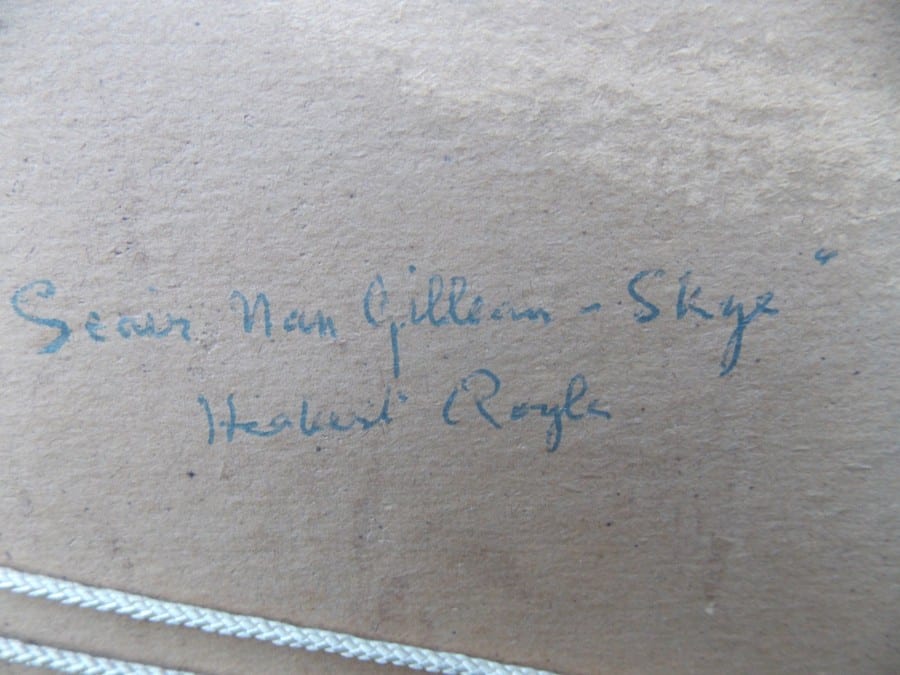 Scavr Nan Gillean - Skye"
Herbert Royle